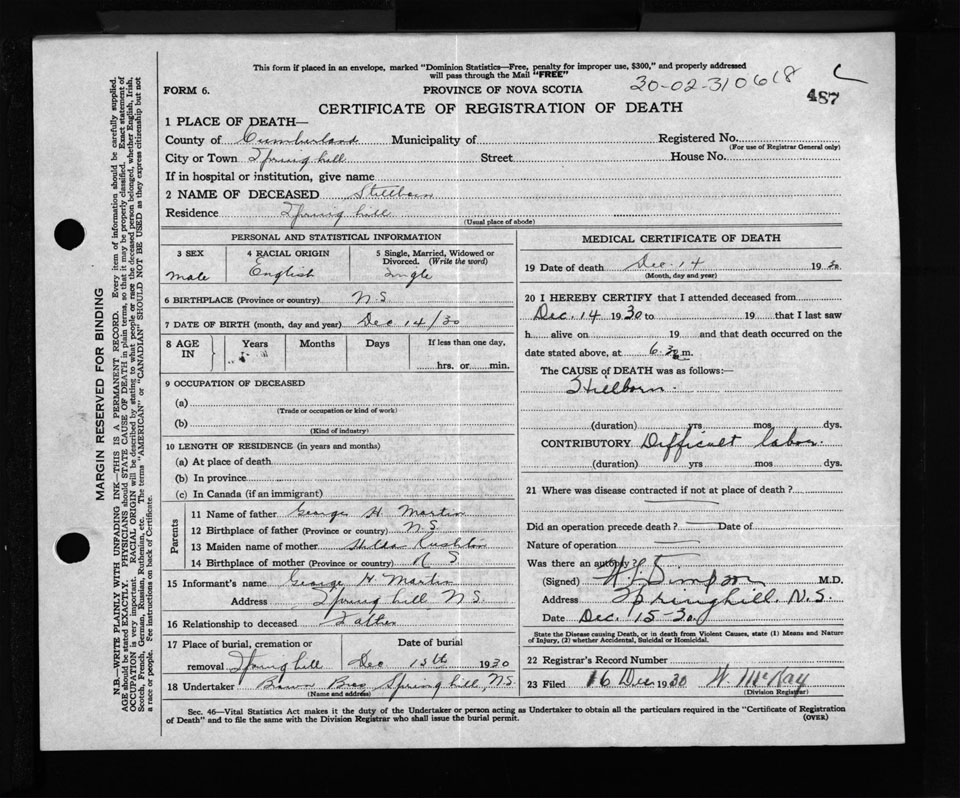 This form if placed in an envelope, marked "Dominion Statistics—Free, penalty for improper use, $300," and properly addressed
will pass through the Mail "FREE"
20-02-310618
487
FORM 6.
PROVINCE OF NOVA SCOTIA
CERTIFICATE OF REGISTRATION OF DEATH
1 PLACE OF DEATH—
County of Cumberland Municipality of Registered No.
(For use of Registrar General only)
City or Town Spring hill Street House No.
If in hospital or institution, give name
2 NAME OF DECEASED Stillborn
Residence Spring hill
(Usual place of abode)
PERSONAL AND STATISTICAL INFORMATION
3 SEX 4 RACIAL ORIGIN 5 Single, Married, Widowed or
Divorced. (Write the word)
male English Single
6 BIRTHPLACE (Province or country) N.S.
7 DATE OF BIRTH (month, day and year) Dec 14/30
8 AGE IN Years Months Days If less than one day,
hrs. or min.
9 OCCUPATION OF DECEASED
(a)
(Trade or occupation or kind of work)
(b)
(Kind of industry)
10 LENGTH OF RESIDENCE (in years and months)
(a) At place of death
(b) In province
(c) In Canada (if an immigrant)
Parents
11 Name of father George H Martin
12 Birthplace of father (Province or country) N.S.
13 Maiden name of mother Hilda Rushton
14 Birthplace of mother (Province or country) N S
15 Informant's name George H. Martin
Address Spring hill N S.
16 Relationship to deceased Father
17 Place of burial, cremation or Date of burial
removal Spring hill Dec 15th 1930
18 Undertaker Brown Bros, Spring hill, N.S.
(Name and address)
MEDICAL CERTIFICATE OF DEATH
19 Date of death Dec. 14 1930
(Month, day and year)
20 I HEREBY CERTIFY that I attended deceased from
Dec. 14 1930 to 19 that I last saw
h alive on 19 and that death occurred on
date stated above, at 6.30 m.
The CAUSE of DEATH was as follows:—
Stillborn.
(duration) yrs mos dys.
CONTRIBUTORY Difficult labor.
(duration) yrs mos dys.
21 Where was disease contracted if not at place of death?
Did an operation precede death? Date of
Nature of operation
Was there an autopsy?
(Signed) Simpson M.D.
Address Springhill. N.S.
Date Dec. 15-30.
State the Disease causing Death, or in death from Violent Causes, state (1) Means and Nature
of Injury, (2) whether Accidental, Suicidal or Homicidal.
22 Registrar's Record Number
23 Filed 16 Dec. 1930 W. McKay
(Division Registrar)
Sec. 46—Vital Statistics Act makes it the duty of the Undertaker or person acting as Undertaker to obtain all the particulars required in the "Certificate of Registration
of Death" and to file the same with the Division Registrar who shall issue the burial permit.
(OVER)
MARGIN RESERVED FOR BINDING
N.B.—WRITE PLAINLY WITH UNFADING INK—THIS IS A PERMANENT RECORD. Every item of information should be carefully supplied.
AGE should be stated EXACTLY. PHYSICIANS should STATE CAUSE OF DEATH in plain terms, so that it may be properly classified. Exact statement of
OCCUPATION is very important. RACIAL ORIGIN will be described by stating to what people or race the deceased person belonged, whether English, Irish,
Scotch, French, German, Russian, Ruthenian, etc. The terms "AMERICAN" or "CANADIAN" SHOULD NOT BE USED as they express citizenship but not
a race or people. See instructions on back of Certificate.